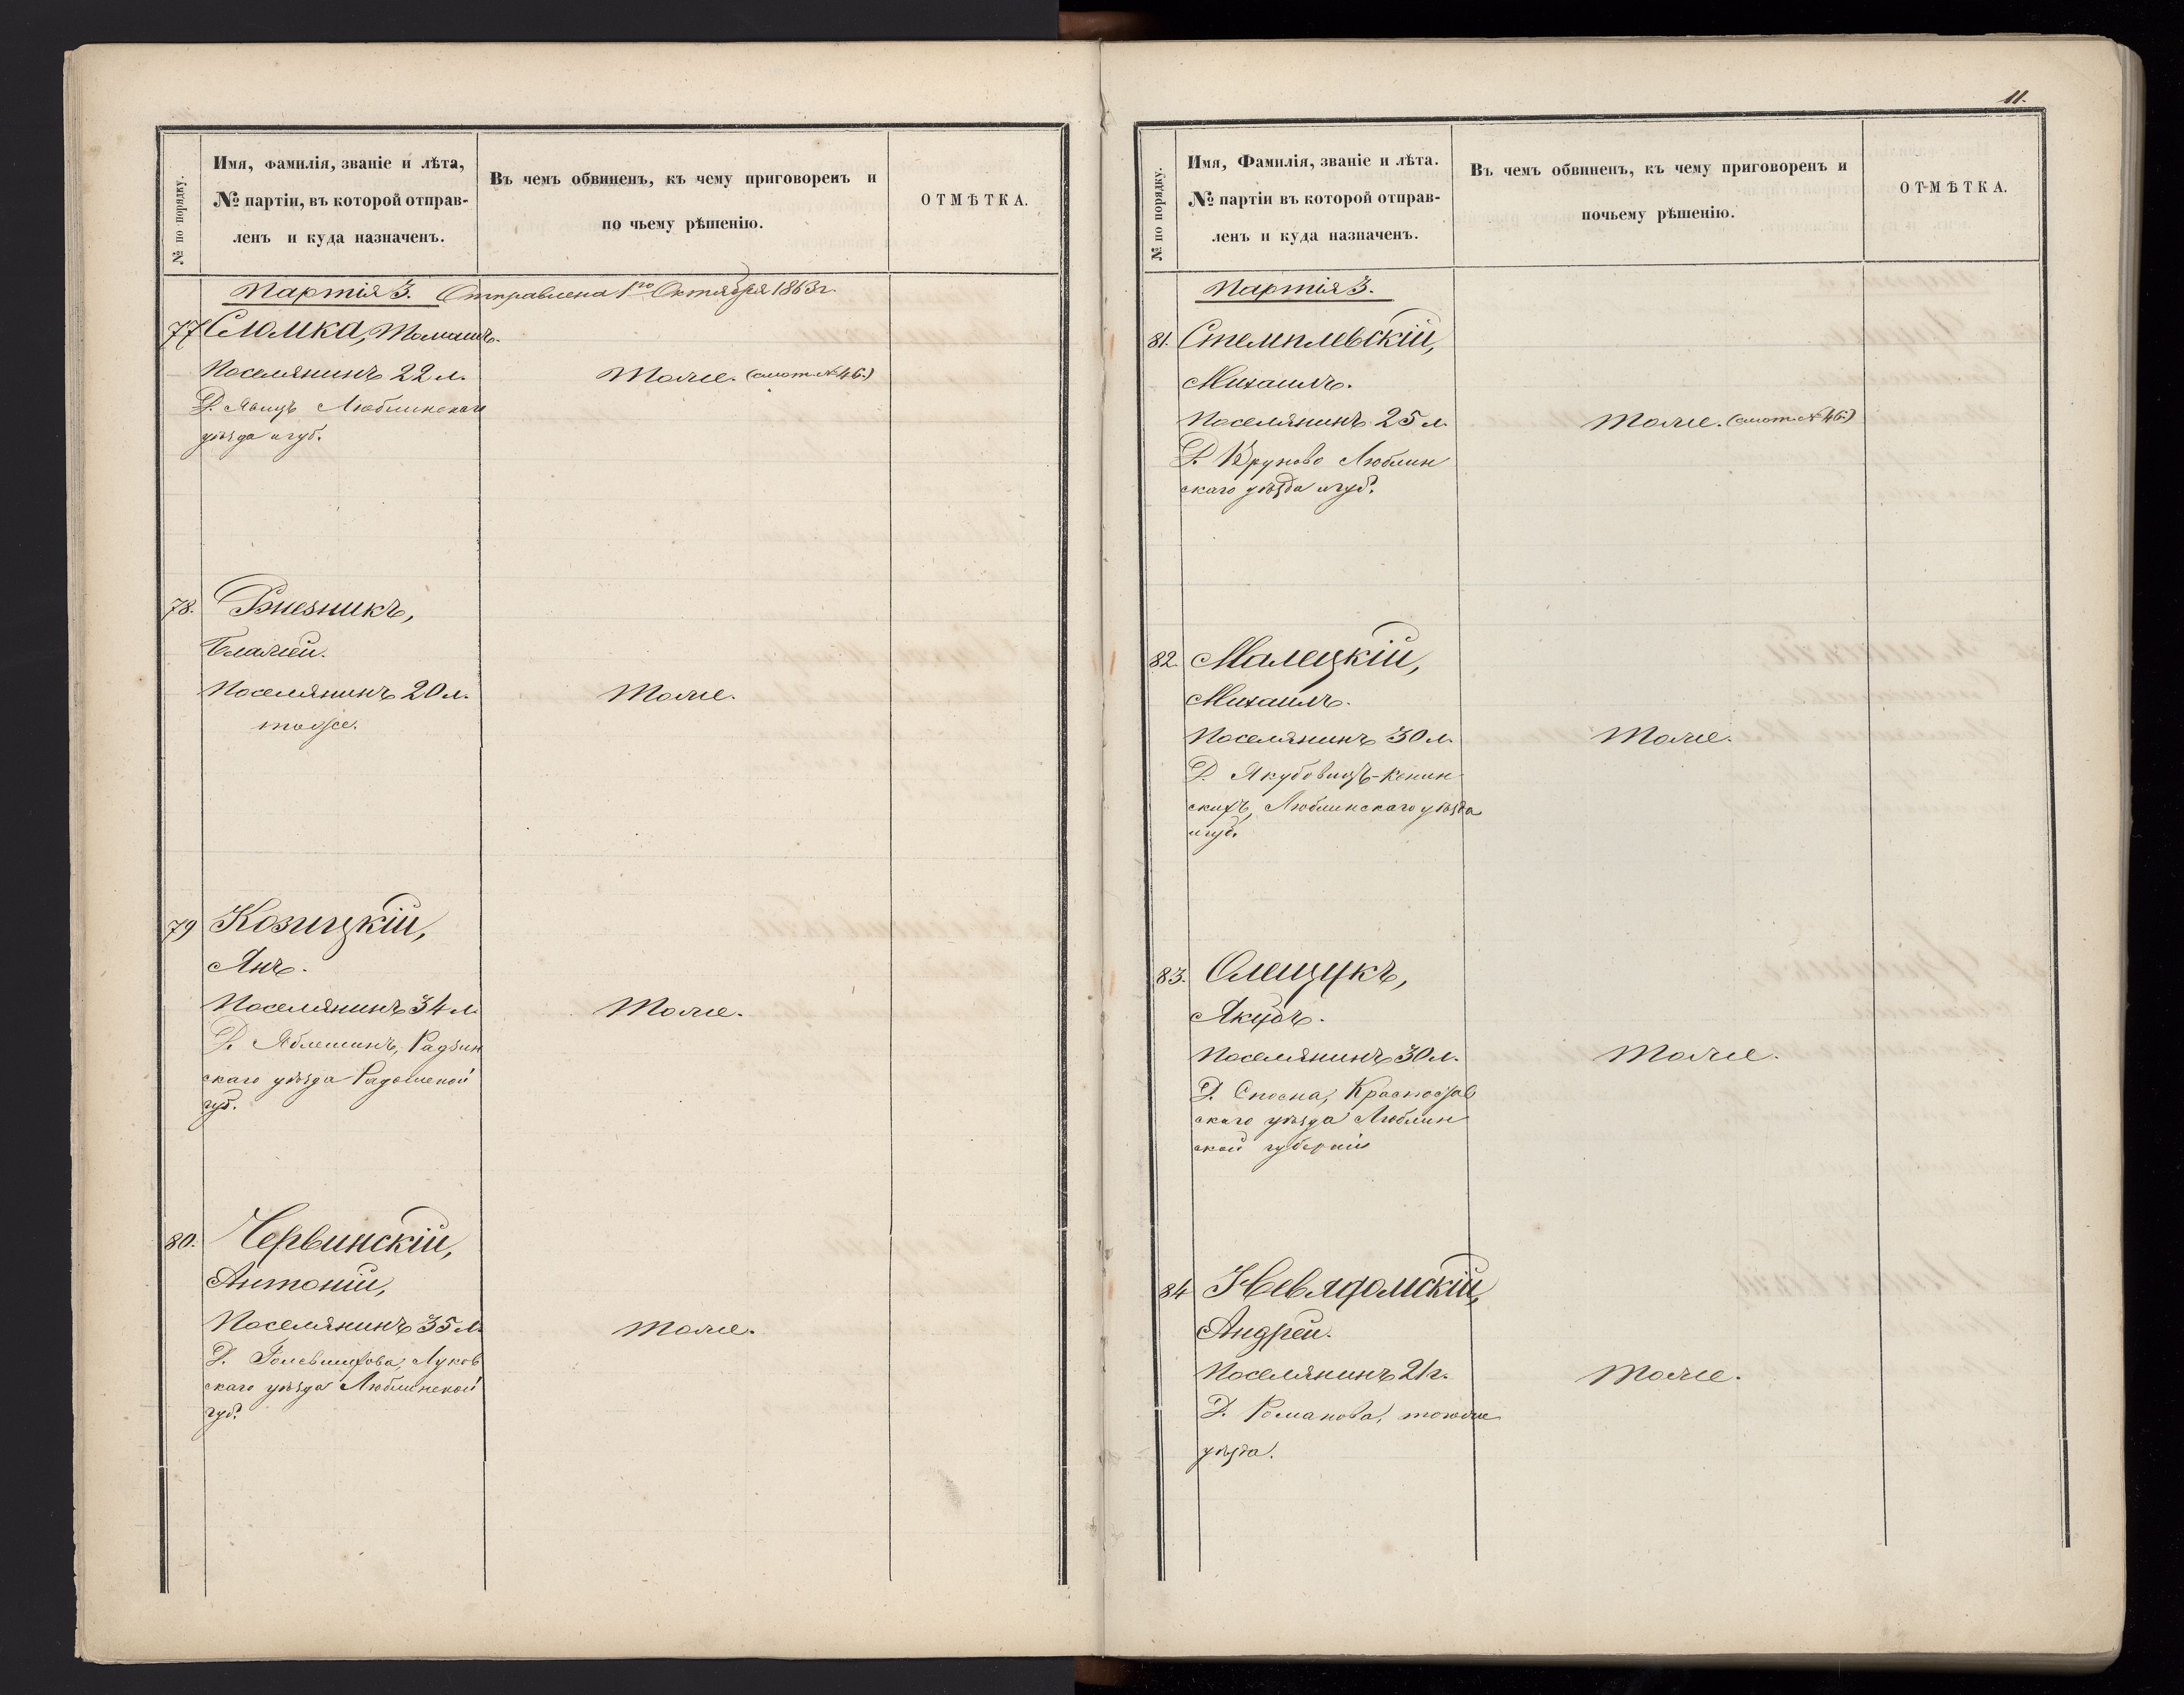 № по порядку.
Имя, Фамилія, званіе и лѣта,
№ партіи, въ которой отправ-
ленъ и куда назначенъ.
Въ чемъ обвиненъ, къ чему приговоренъ и
по чьему рѣшенію.
ОТМѢТКА.
Партія 3. Отправлена 1го Октября 1863 г.
77 Сломка, Томашъ.
Поселянинъ 22 л.
Тоже. (смот. № 46.)
Д. Люблинскаго
уѣзда и губ.
78.
Блажей.
Поселянинъ 20 л.
Тоже.
тоже.
79 Козицкій,
Янъ.
Поселянинъ 34 л.
Тоже.
Д. Радзин
скаго уѣзда Радомской
губ.
80. Червинскій,
Антоній,
Поселянинъ 35 л.
Тоже.
Д. Луков
скаго уѣзда Люблинской
губ.
11.
№ по порядку.
Имя, Фамилія, званіе и лѣта.
№ партіи въ которой отправ-
ленъ и куда назначенъ.
Въ чемъ обвиненъ, къ чему приговоренъ и
почьему рѣшенію.
ОТМѢТКА.
Партія 3.
81. Стемплевскій,
Михаилъ.
Поселянинъ 25 л.
Тоже. (смот. № 46.)
Д. Круново Люблин
скаго уѣзда и губ.
82. Малецкій,
Михаилъ.
Поселянинъ 30 л.
Тоже.
Д. Якубовицъ-Конин
скихъ, Люблинскаго уѣзда
и губ.
83. Олещукъ,
Якубъ.
Поселянинъ 30 л.
Тоже.
Д. Спосна, Красностав
скаго уѣзда Люблин
ской губерніи
84 Невядомскій,
Андрей.
Поселянинъ 21 г.
Тоже.
Д. Романова, тогоже
уѣзда.